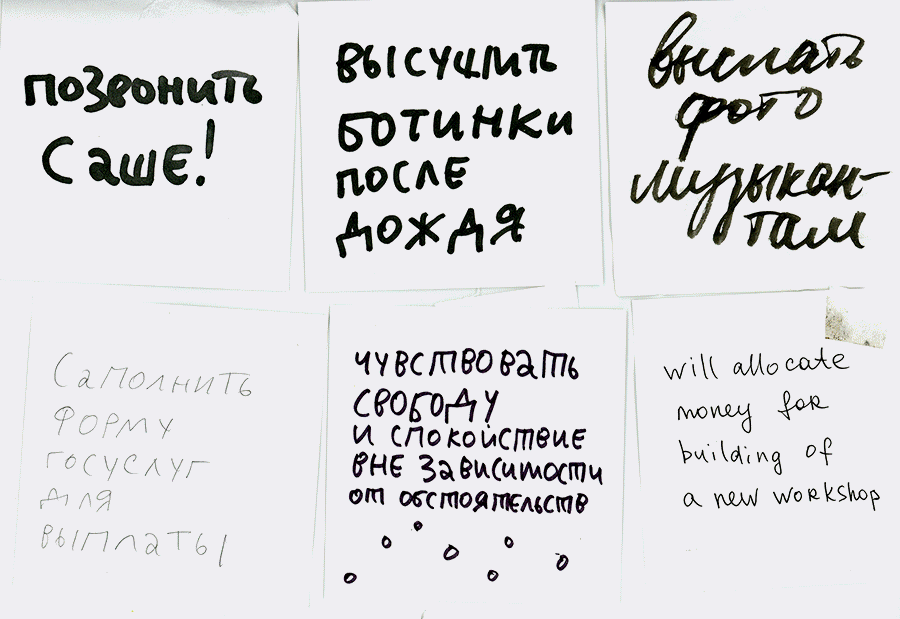 позвонить
Саше!
высушить
ботинки
после
дождя
выслать
фото
музыкан-
там
Саполнить
форму
госуслуг
для
выплаты
чувствовать
свободу
и спокойствие
вне зависимости
от обстоятельств
will allocate
money for
building of
a new workshop